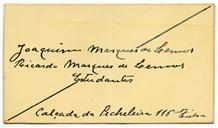 Joaquim Marques de Lemos
Ricardo Marques de Lemos
Estudantes
Calçada da Picheleira 115
Lisboa